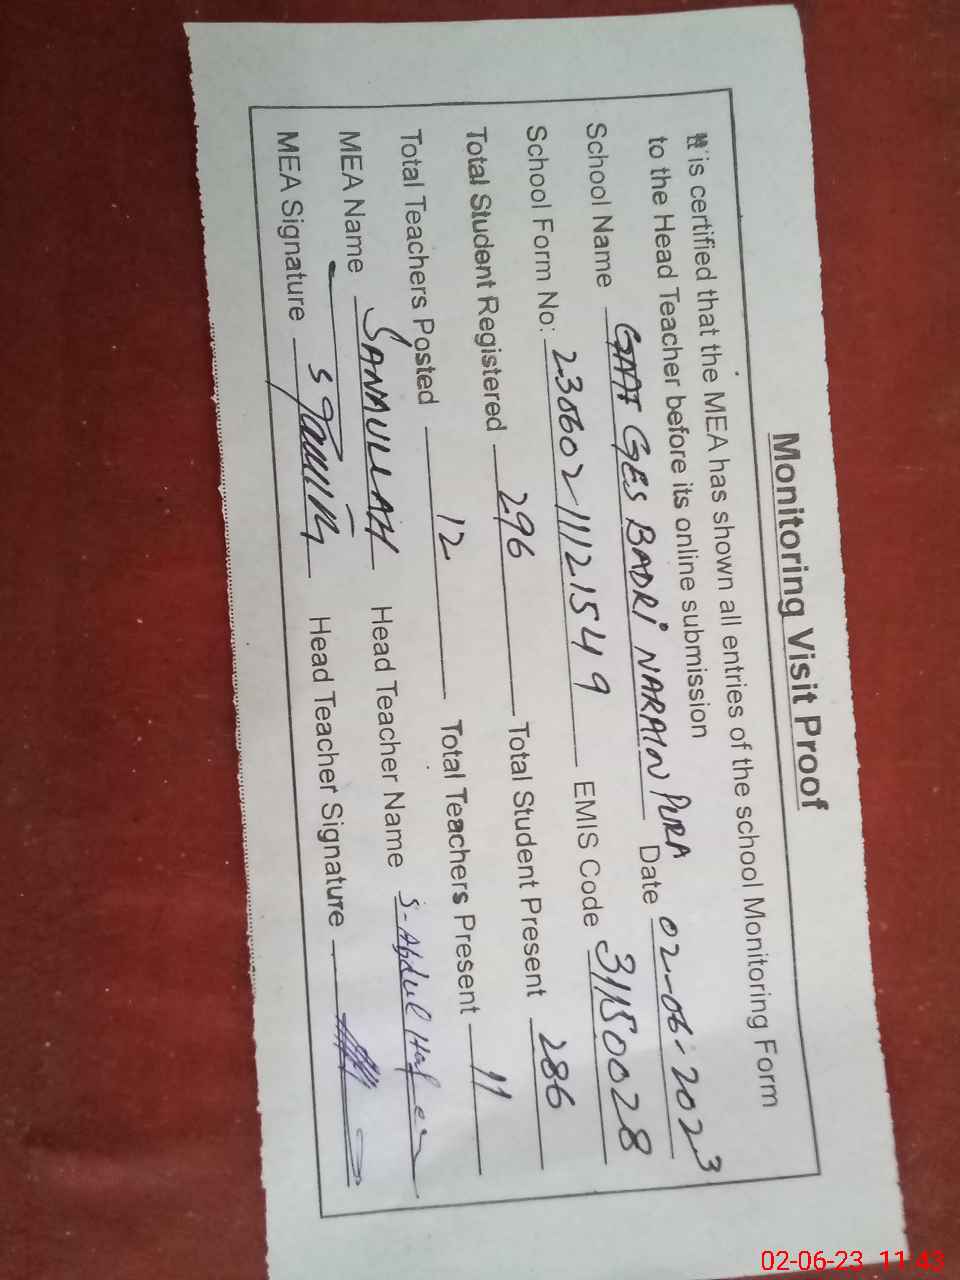 Monitoring Visit Proof
It is certified that the MEA has shown all entries of the school Monitoring Form
to the Head Teacher before its online submission
School Name GAAT GES BADRI NARAIN PURA Date 02-06-2023
School Form No: 23060211121549 EMIS Code 31150028
Total Student Registered 296 Total Student Present 286
Total Teachers Posted 12 Total Teachers Present 11
MEA Name SANAULLAH Head Teacher Name S-Abdul
MEA Signature Head Teacher Signature
02-06-23 11:43